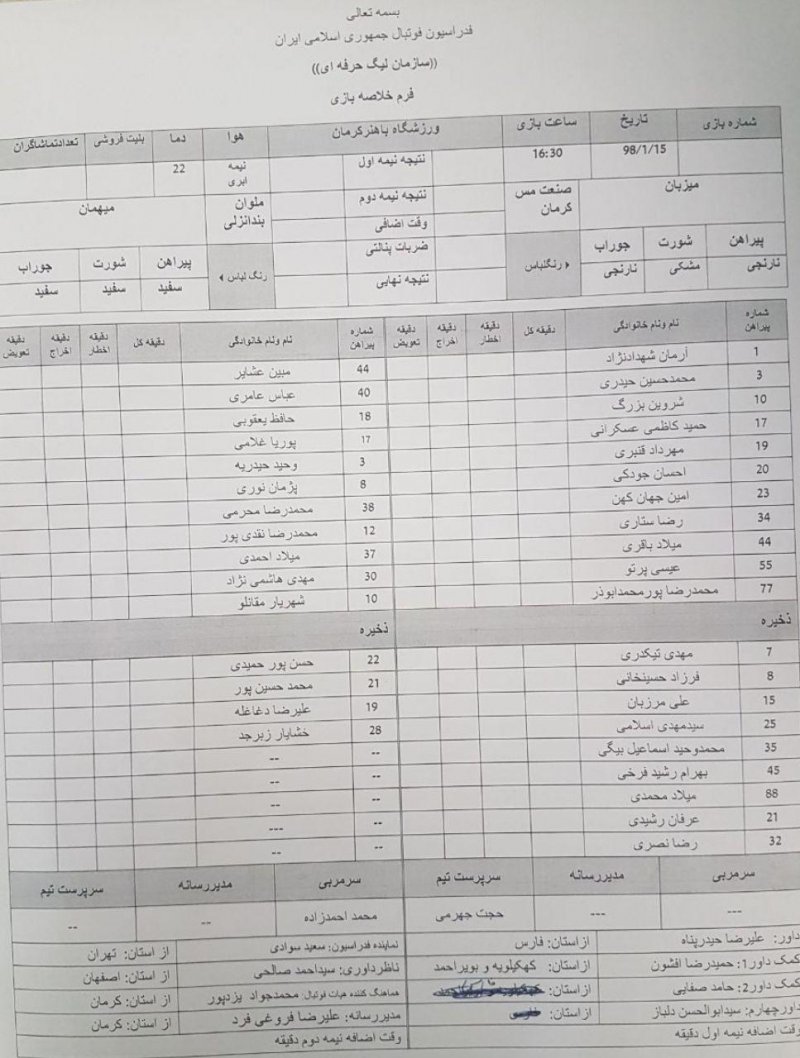 بسمه تعالی
فدراسیون فوتبال جمهوری اسلامی ایران
((سازمان لیگ حرفه ای))
فرم خلاصه بازی
شماره بازی تاریخ ساعت بازی ورزشگاه باهنرکرمان هوا دما بلیت فروشی تعدادتماشاگران
98/1/15 16:30 نتیجه نیمه اول نیمه ابری 22
میزبان صنعت مس کرمان نتیجه نیمه دوم ملوان بندانزلی میهمان
وقت اضافی
پیراهن شورت جوراب رنگلباس ضربات پنالتی رنگ لباس پیراهن شورت جوراب
نارنجی مشکی نارنجی نتیجه نهایی سفید سفید سفید
شماره پیراهن نام ونام خانوادگی دقیقه کل دقیقه اخطار دقیقه اخراج دقیقه تعویض شماره پیراهن نام ونام خانوادگی دقیقه کل دقیقه اخطار دقیقه اخراج دقیقه تعویض
1 آرمان شهدادنژاد 44 مبین عشایر
3 محمدحسین حیدری 40 عباس عامری
10 شروین بزرگ 18 حافظ یعقوبی
17 حمید کاظمی عسکرانی 17 پوریا غلامی
19 مهرداد قنبری 3 وحید حیدریه
20 احسان جودکی 8 پژمان نوری
23 امین جهان کهن 38 محمدرضا محرمی
34 رضا ستاری 12 محمدرضا نقدی پور
44 میلاد باقری 37 میلاد احمدی
55 عیسی پرتو 30 مهدی هاشمی نژاد
77 محمدرضا پورمحمدابوذر 10 شهریار مقانلو
ذخیره ذخیره
7 مهدی تیکدری 22 حسن پور حمیدی
8 فرزاد حسینخانی 21 محمد حسین پور
15 علی مرزبان 19 علیرضا دغاغله
25 سیدمهدی اسلامی 28 خشایار زبرجد
35 محمدوحید اسماعیل بیگی -- --
45 بهرام رشید فرخی -- --
88 میلاد محمدی -- --
21 عرفان رشیدی -- ---
32 رضا نصری -- --
سرمربی مدیررسانه سرپرست تیم سرمربی مدیررسانه سرپرست تیم
--- --- حجت جهرمی محمد احمدزاده -- --
داور: علیرضا حیدرپناه ازاستان: فارس نماینده فدراسیون: سعید سوادی از استان: تهران
کمک داور1: حمیدرضا افشون ازاستان: کهکیلویه و بویراحمد ناظرداوری: سیداحمد صالحی از استان: اصفهان
کمک داور2: حامد صفایی ازاستان: هماهنگ کننده هیات فوتبال: محمدجواد یزدپور از استان: کرمان
داورچهارم: سیدابوالحسن دلباز ازاستان: مدیررسانه: علیرضا فروغی فرد از استان: کرمان
وقت اضافه نیمه اول دقیقه وقت اضافه نیمه دوم دقیقه